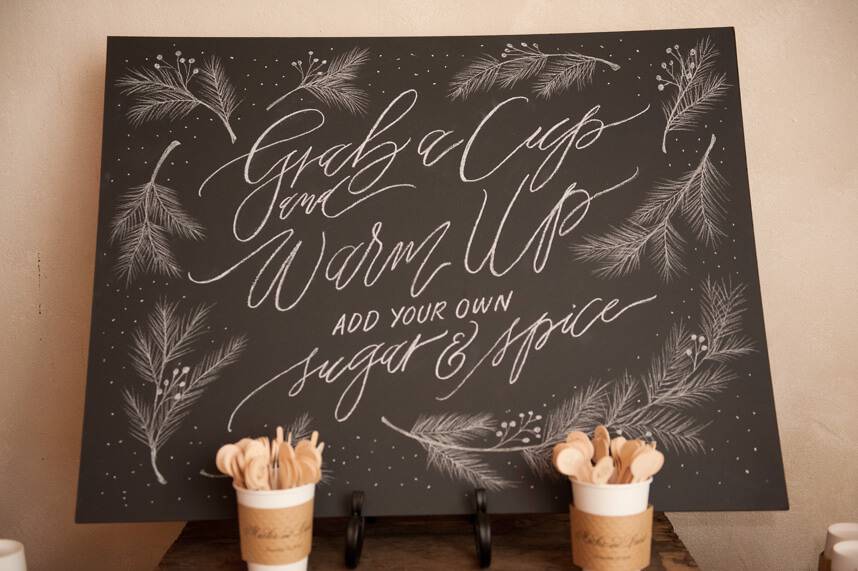 Grab a Cup
and
Warm Up
ADD YOUR OWN
sugar & spice